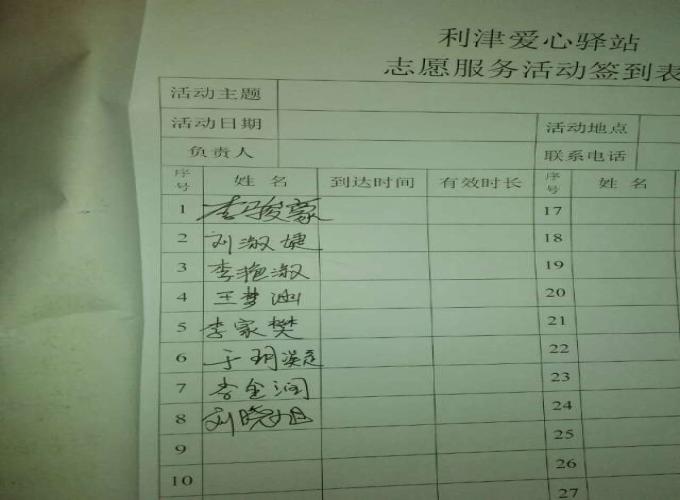 利津爱心驿站
志愿服务活动签到表
活动主题
活动日期 活动地点
负责人 联系电话
序号 姓名 到达时间 有效时长 序号 姓名
1 李骏豪 17
2 刘淑婕 18
3 李艳淑 19
4 王梦 20
5 李家樊 21
6 于玥 22
7 李金润 23
8 刘晓旭 24
9 25
10 26
27